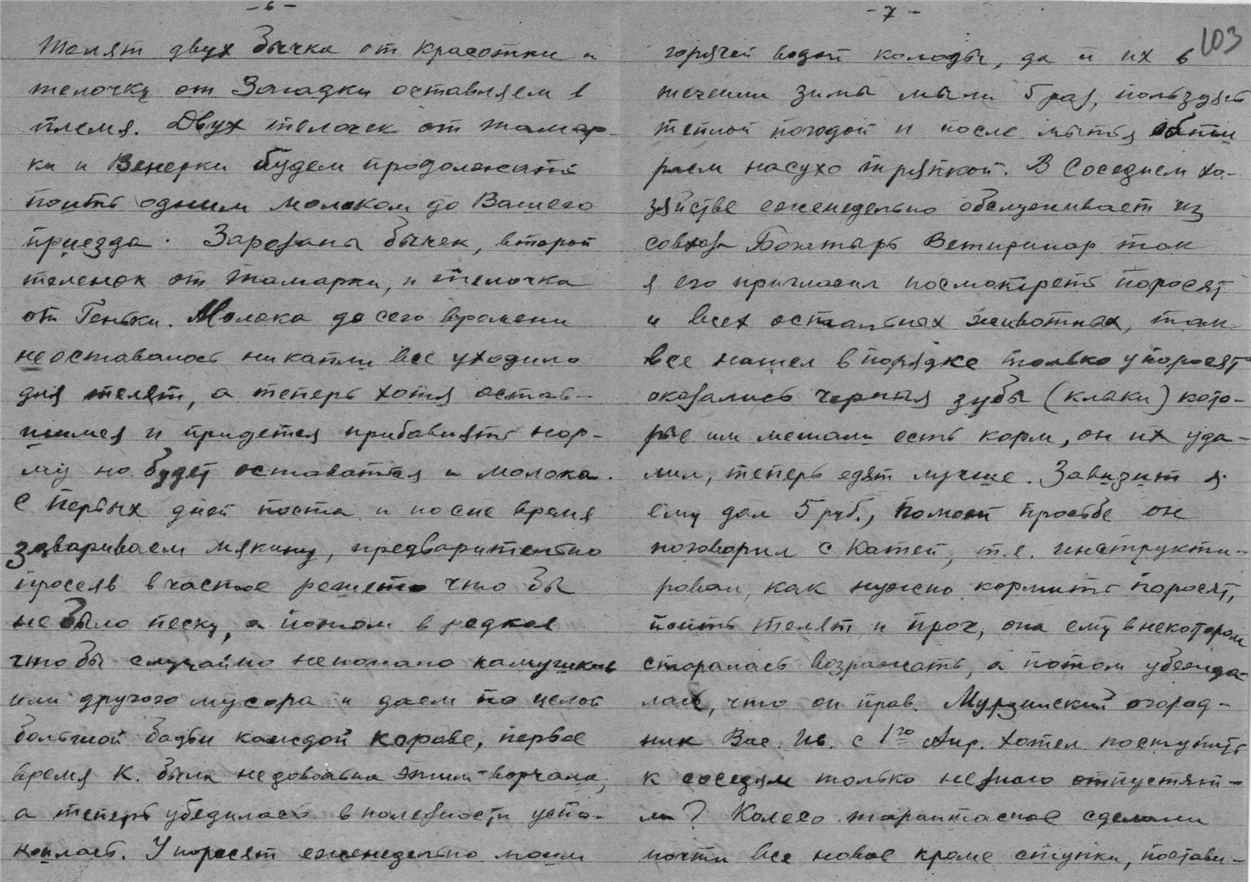 - 6 -
Телят двух бычка от Красотки и
телочку от Загадки оставляем в
племя. Двух телочек от Тамар-
ки и Венерки будем продолжать
поить одним молоком до Вашего
приезда. Зарезаны бычек, второй
теленок от Тамарки, и телочка
от Геньки. Молока до сего времени
не оставалось ни капли все уходило
для телят, а теперь хотя остав-
шимся и придется прибавлять нор-
му но будет оставаться и молока.
С первых дней поста и после время
завариваем мякину, предварительно
просеяв в частое решето что бы
не было песку, а потом в редкое
что бы случайно непопало камушков
или другого мусора и даем по целой
большой бадьи каждой корове, первое
время К. была недовольна этим - ворчала,
а теперь убедилась в полезности успо-
коилась. У поросят еженедельно моем
- 7 -
103
горячей водой колоды, да и их в
течении зимы мыли 5 раз, пользуясь
теплой погодой и после мытья обти
раем насухо тряпкой. В Соседнем хо-
зяйстве еженедельно обслуживает из
совхоза Богатырь Ветиринар так
я его пригласил посмотреть поросят
и всех остальных животных, так
все нашел в порядке только у поросят
оказались черныя зубы (клыки) кото-
рые им мешали есть корм, он их уда-
лил, теперь едят лучше. За визит я
ему дал 5 руб., по моей просьбе он
поговорил с Катей, т.е. инструкти-
ровал, как нужно кормить поросят,
поить телят и проч, она ему в некотором
старалась возражать, а потом убежда-
лась, что он прав. Мурзинский огород-
ник Вас. Ив. с 1го Апр. хотел поступить
к соседям только незнаю отпустят-
ли? Колесо тарантасное сделали
почти все новое кроме ступки, постави-